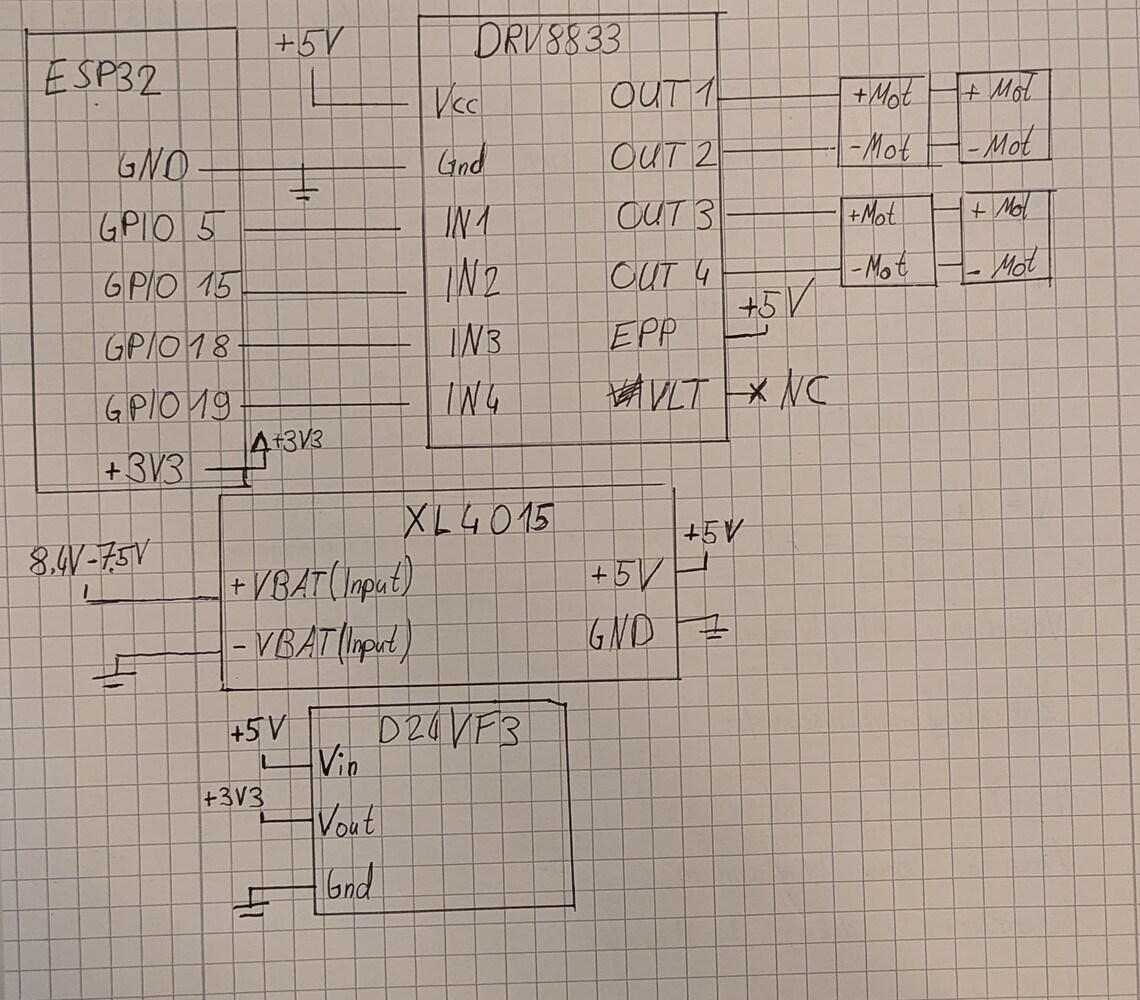 ESP32
GND
GPIO 5
GPIO 15
GPIO 18
GPIO 19
+3V3
+3V3
+5V
DRV8833
Vcc
Gnd
IN1
IN2
IN3
IN4
OUT 1
OUT 2
OUT 3
OUT 4
EPP
VLT
+5V
NC
+Mot
-Mot
+ Mot
- Mot
+Mot
-Mot
+ Mot
- Mot
XL4015
8.4V-7.5V
+VBAT(Input)
-VBAT(Input)
+5V
GND
+5V
D24VF3
+5V
Vin
+3V3
Vout
Gnd